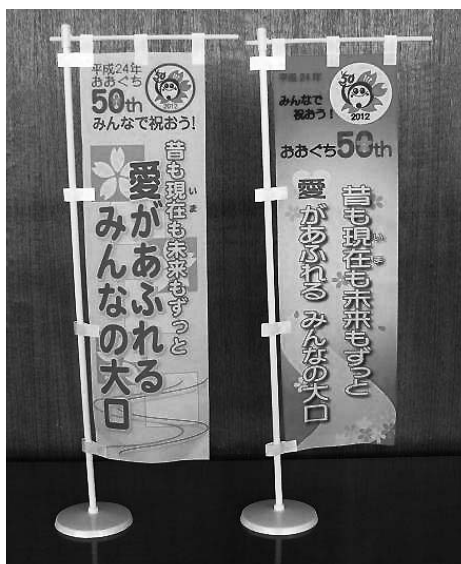 平成24年
おおぐち
50th
みんなで祝おう!
50
2012
昔も現在も未来もずっと
いま
愛があふれる
みんなの大口
平成24年
みんなで
祝おう!
50
2012
おおぐち50th
昔も現在も未来もずっと
いま
愛があふれる みんなの大口